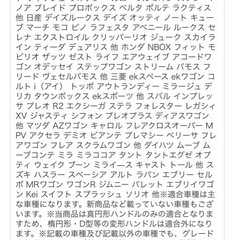 ノア ブレイド プロボックス ベルタ ポルテ ラクティス
他 日産 デイズルークス デイズ オッティ ノート キュー
ブ マーチ モコ ピノ ラフェスタ アベニール ルークス セ
レナ エクストロイル クリッパーリオ ジューク スカイラ
イン ティーダ デュアリス 他 ホンダ NBOX フィット モ
ビリオ ザッツ ゼスト ライフ エアウェイブ アコードワゴ
ン オデッセイ ステップワゴン ストリーム バモス フ
リード ヴェゼルバモス 他 三菱 ekスペース ekワゴン コルト
ｉ（アイ） トッポ アウトランディー ミラージュ デ
リカ タウンボックス ekSPORT 他 スバル インプレッ
サ プレオ R2 エクシーガ ステラ フォレスター レガシィ
XV ジャスティ シフォン プレオプラス ディアスワゴン
他 マツダ AZワゴン キャロル フレアクロスオーバー M
PV アクセラ デミオ ビアンテ プレマシー ベリーサ フレ
アワゴン フレア スクラムワゴン 他 ダイハツ ムーブ ム
ーブコンテ ミラ ミラココア タント タントエグゼ オプ
ティ ウェイク ブーン ミライース キャスト トール 他 ス
ズキ ハスラー スペーシア アルト ラパン エブリー セル
ボ MRワゴン ワゴンR ジムニー パレット エブリイワゴ
ン Kei スイフト スプラッシュ ソリオ 他※適合車種は主
な車種になります。新商品など載っていない車種もござ
います。※当商品は真円形ハンドルのみの適合となりま
すため、楕円形・D型等の変形ハンドルは適合外になり
ます。※記載の車種及び記載以外の車種でも、グレード